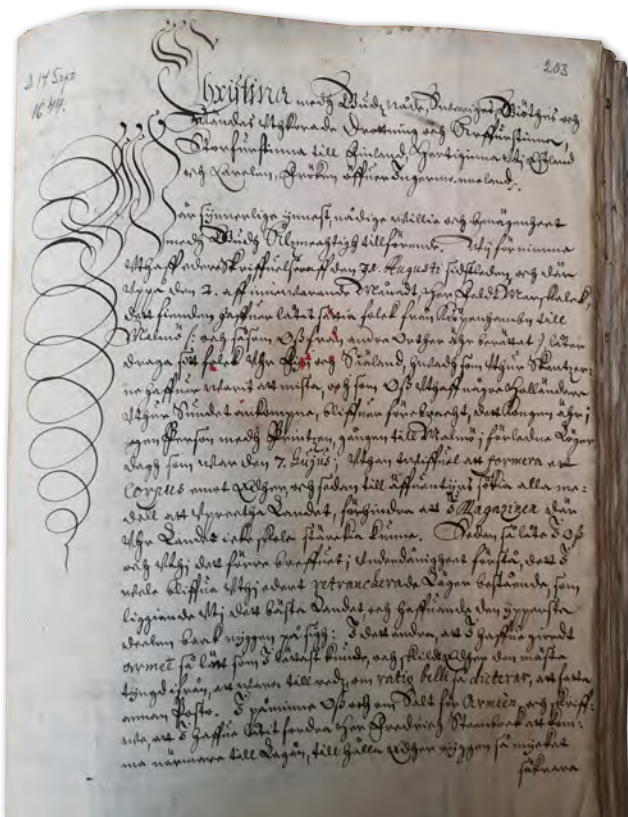 203
D 14 Sept.
1644.
Christina medh Gudz Nåde, Sweriges, Giöthes och
Wändes Uthkorade Drottning och Arffurstinna,
Storfurstinna till Finland, Hertiginna Uti Estland
och Carelen, Fröken öffuer Ingermanneland.
Wår synnerlige ynnest, nådige willie och benägenheet
medh Gudh Alzmechtigh tillförende. Wij förnimme
Uthaff edert Skriffuelse aff den 31. Augusti sidstleden, och där
uppå den 2. aff innewarande Månadt, Her Feldt Marskalck,
datt fienden haffuer låtit sättia folck från Kiöpenhambn till
Malmö /: och såsom Oss från andre Orther ähr berättat :/ låter
draga sitt folck Uhr Fyn och Siäland, hwadh som Uthur Skantzer-
ne haffuer warit att mista, och som Oss Uthaff någre Holländere
Uthur Sundet ankompne, bliffuer förebracht, datt Kongen ähr i
egen Person medh Printzen, gången till Malmö i förledne Löger-
dagh som war den 7. hujus; Uthan twiffuel att formera ett
Corpus emot Edher, och sedan till äffuentyrs sökia alla me-
dell att Uprätta Landet, förhindra att I Magaziner där
Uhr Landet icke skole stärckia kunne. Sedan så låte I Oss
och Uthi dett förre breffuet i Underdånigheet förstå, dett I
wele bliffue Uthi edert retrancherade Läger bestående, som
liggiende Uti datt bäste Landet och haffuende den ypperste
deelen baak ryggen på sigh: I dett andre, att I haffue giordt
armeen så lätt som I lättast kunde, och skildt Edher den mäste
tyngd ifrån, att ware till redz, om ratio belli så dicterar, att fatta
annan Posto. I påminne Oss och om Salt för Armeen, och skriff-
ue, att I haffue låtit fordra Her Fredrich Steenbock att kom-
ma närmare till Lagån, till hålla Edher ryggen så myckit
säkrare